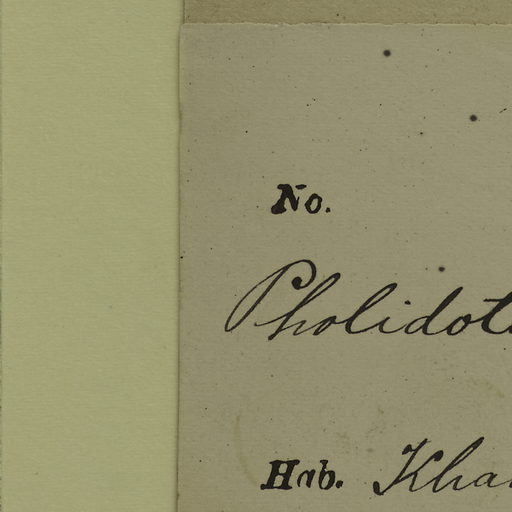 No.
Pholidot
Hab. Kha